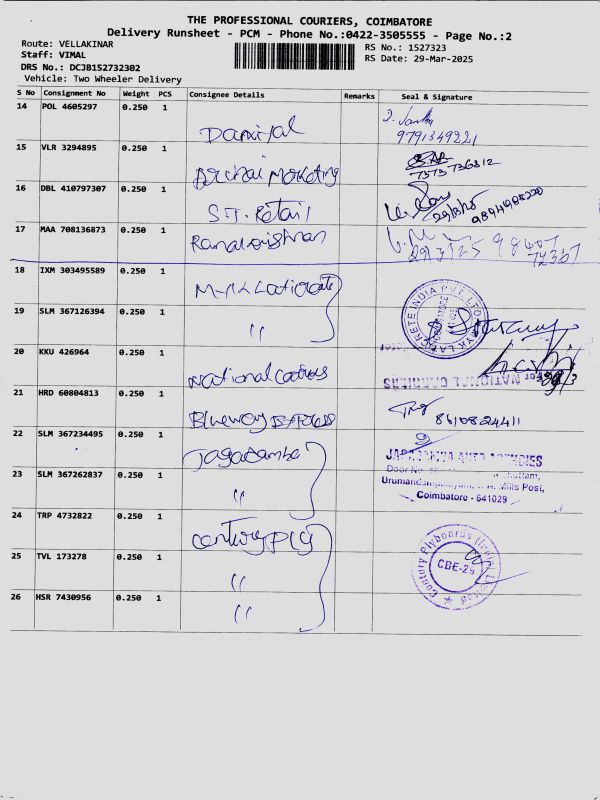 THE PROFESSIONAL COURIERS, COIMBATORE
Delivery Runsheet - PCM - Phone No.:0422-3505555 - Page No.:2
Route: VELLAKINAR
RS No.: 1527323
Staff: VIMAL
RS Date: 29-Mar-2025
DRS No.: DCJB152732302
Vehicle: Two Wheeler Delivery
S No Consignment No Weight PCS Consignee Details Remarks Seal & Signature
14 POL 4605297 0.250 1
9791349221
15 VLR 3294895 0.250 1 Marketing
7373 736812
16 DBL 410797307 0.250 1 Retail
17 MAA 708136873 0.250 1 Ramakrishnan
18 IXM 303495589 0.250 1
19 SLM 367126394 0.250 1 "
20 KKU 426964 0.250 1 National Carriers
For NATIONAL CARRIERS
21 HRD 60804813 0.250 1 Blueway Express
8610824411
22 SLM 367234495 0.250 1 Jagadamba
23 SLM 367262837 0.250 1 "
Coimbatore - 641029
24 TRP 4732822 0.250 1 Century Ply
25 TVL 173278 0.250 1 "
Century Plyboards (India) Limited
CBE-25
26 HSR 7430956 0.250 1 "